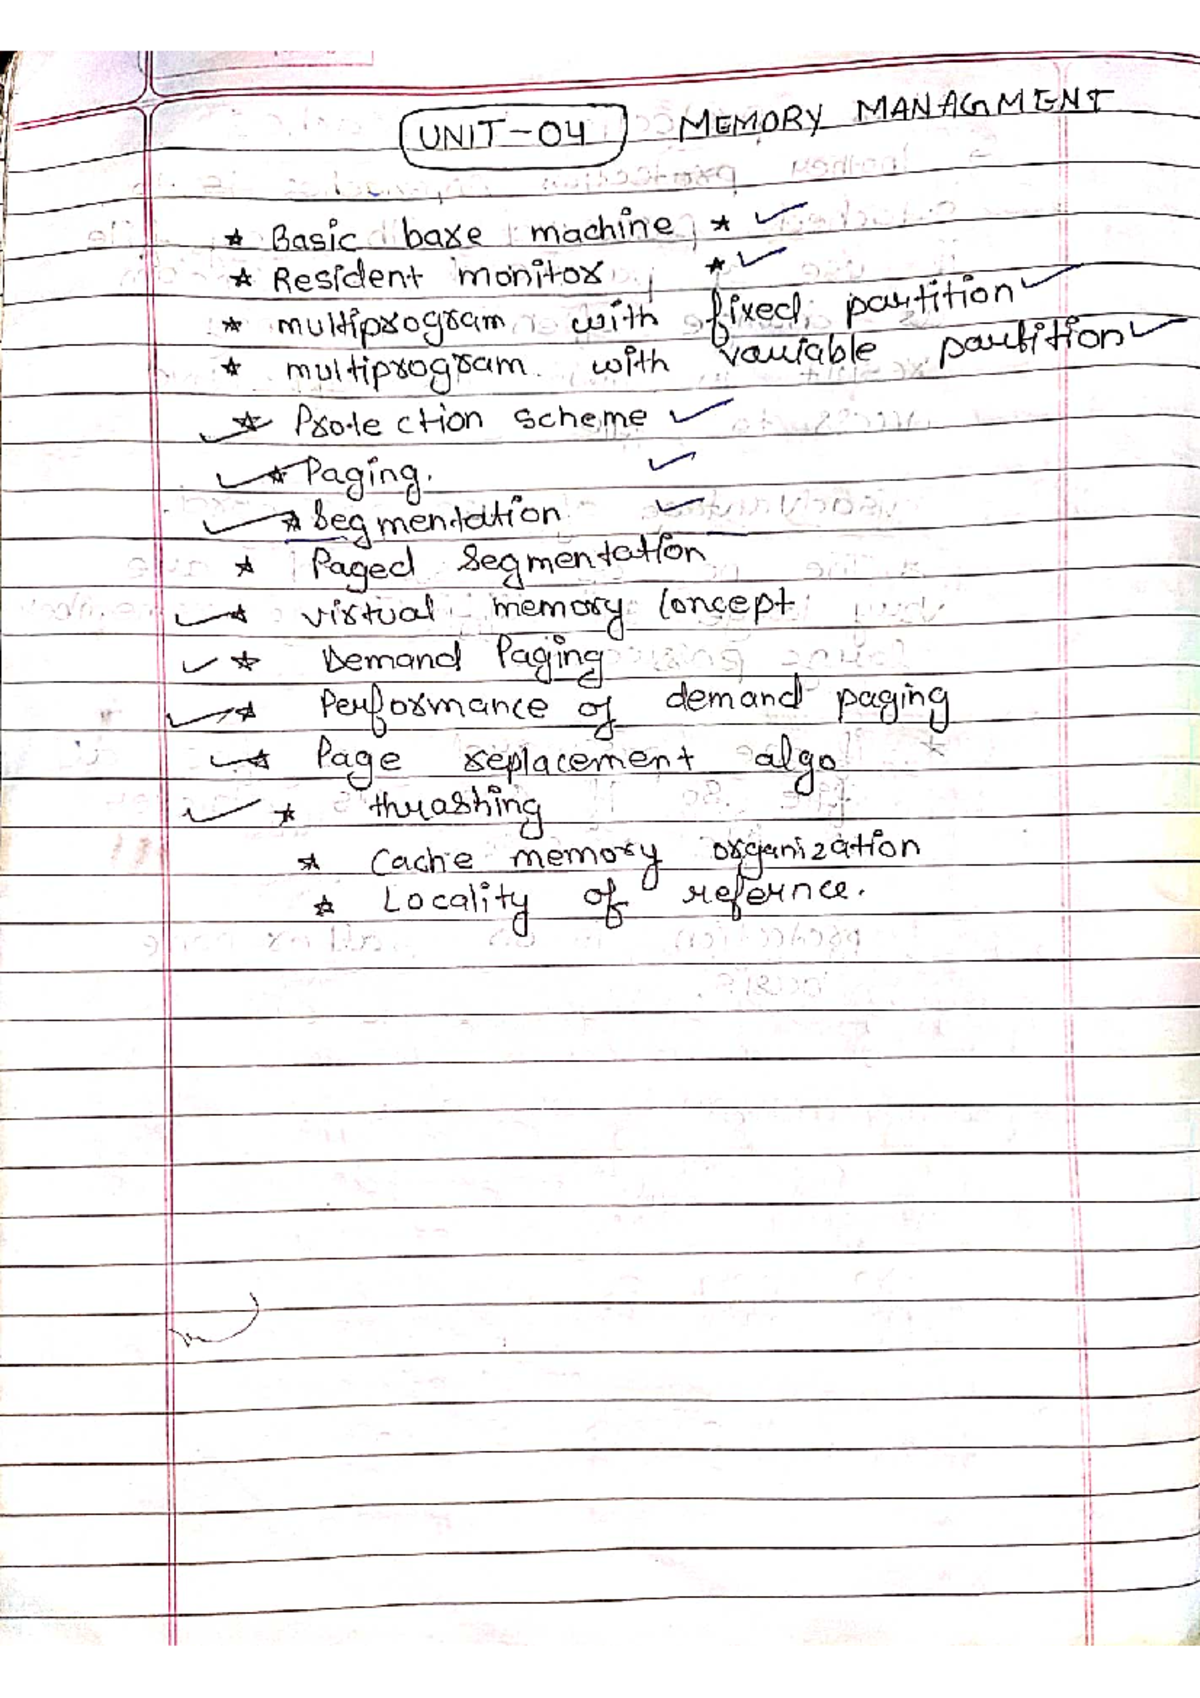 UNIT-04 MEMORY MANAGMENT
★ Basic bare machine ★ ✓
★ Resident monitor ★ ✓
★ multiprogram with fixed partition ✓
★ multiprogram with variable partition ✓
✓ ★ Protection scheme ✓
✓ ★ Paging. ✓
✓ ★ Segmentation ✓
★ Paged Segmentation
✓ ★ virtual memory Concept
✓ ★ Demand Paging
✓ ★ Performance of demand paging
✓ ★ Page replacement algo
✓ ★ thrashing
★ Cache memory organization
★ Locality of refernce.